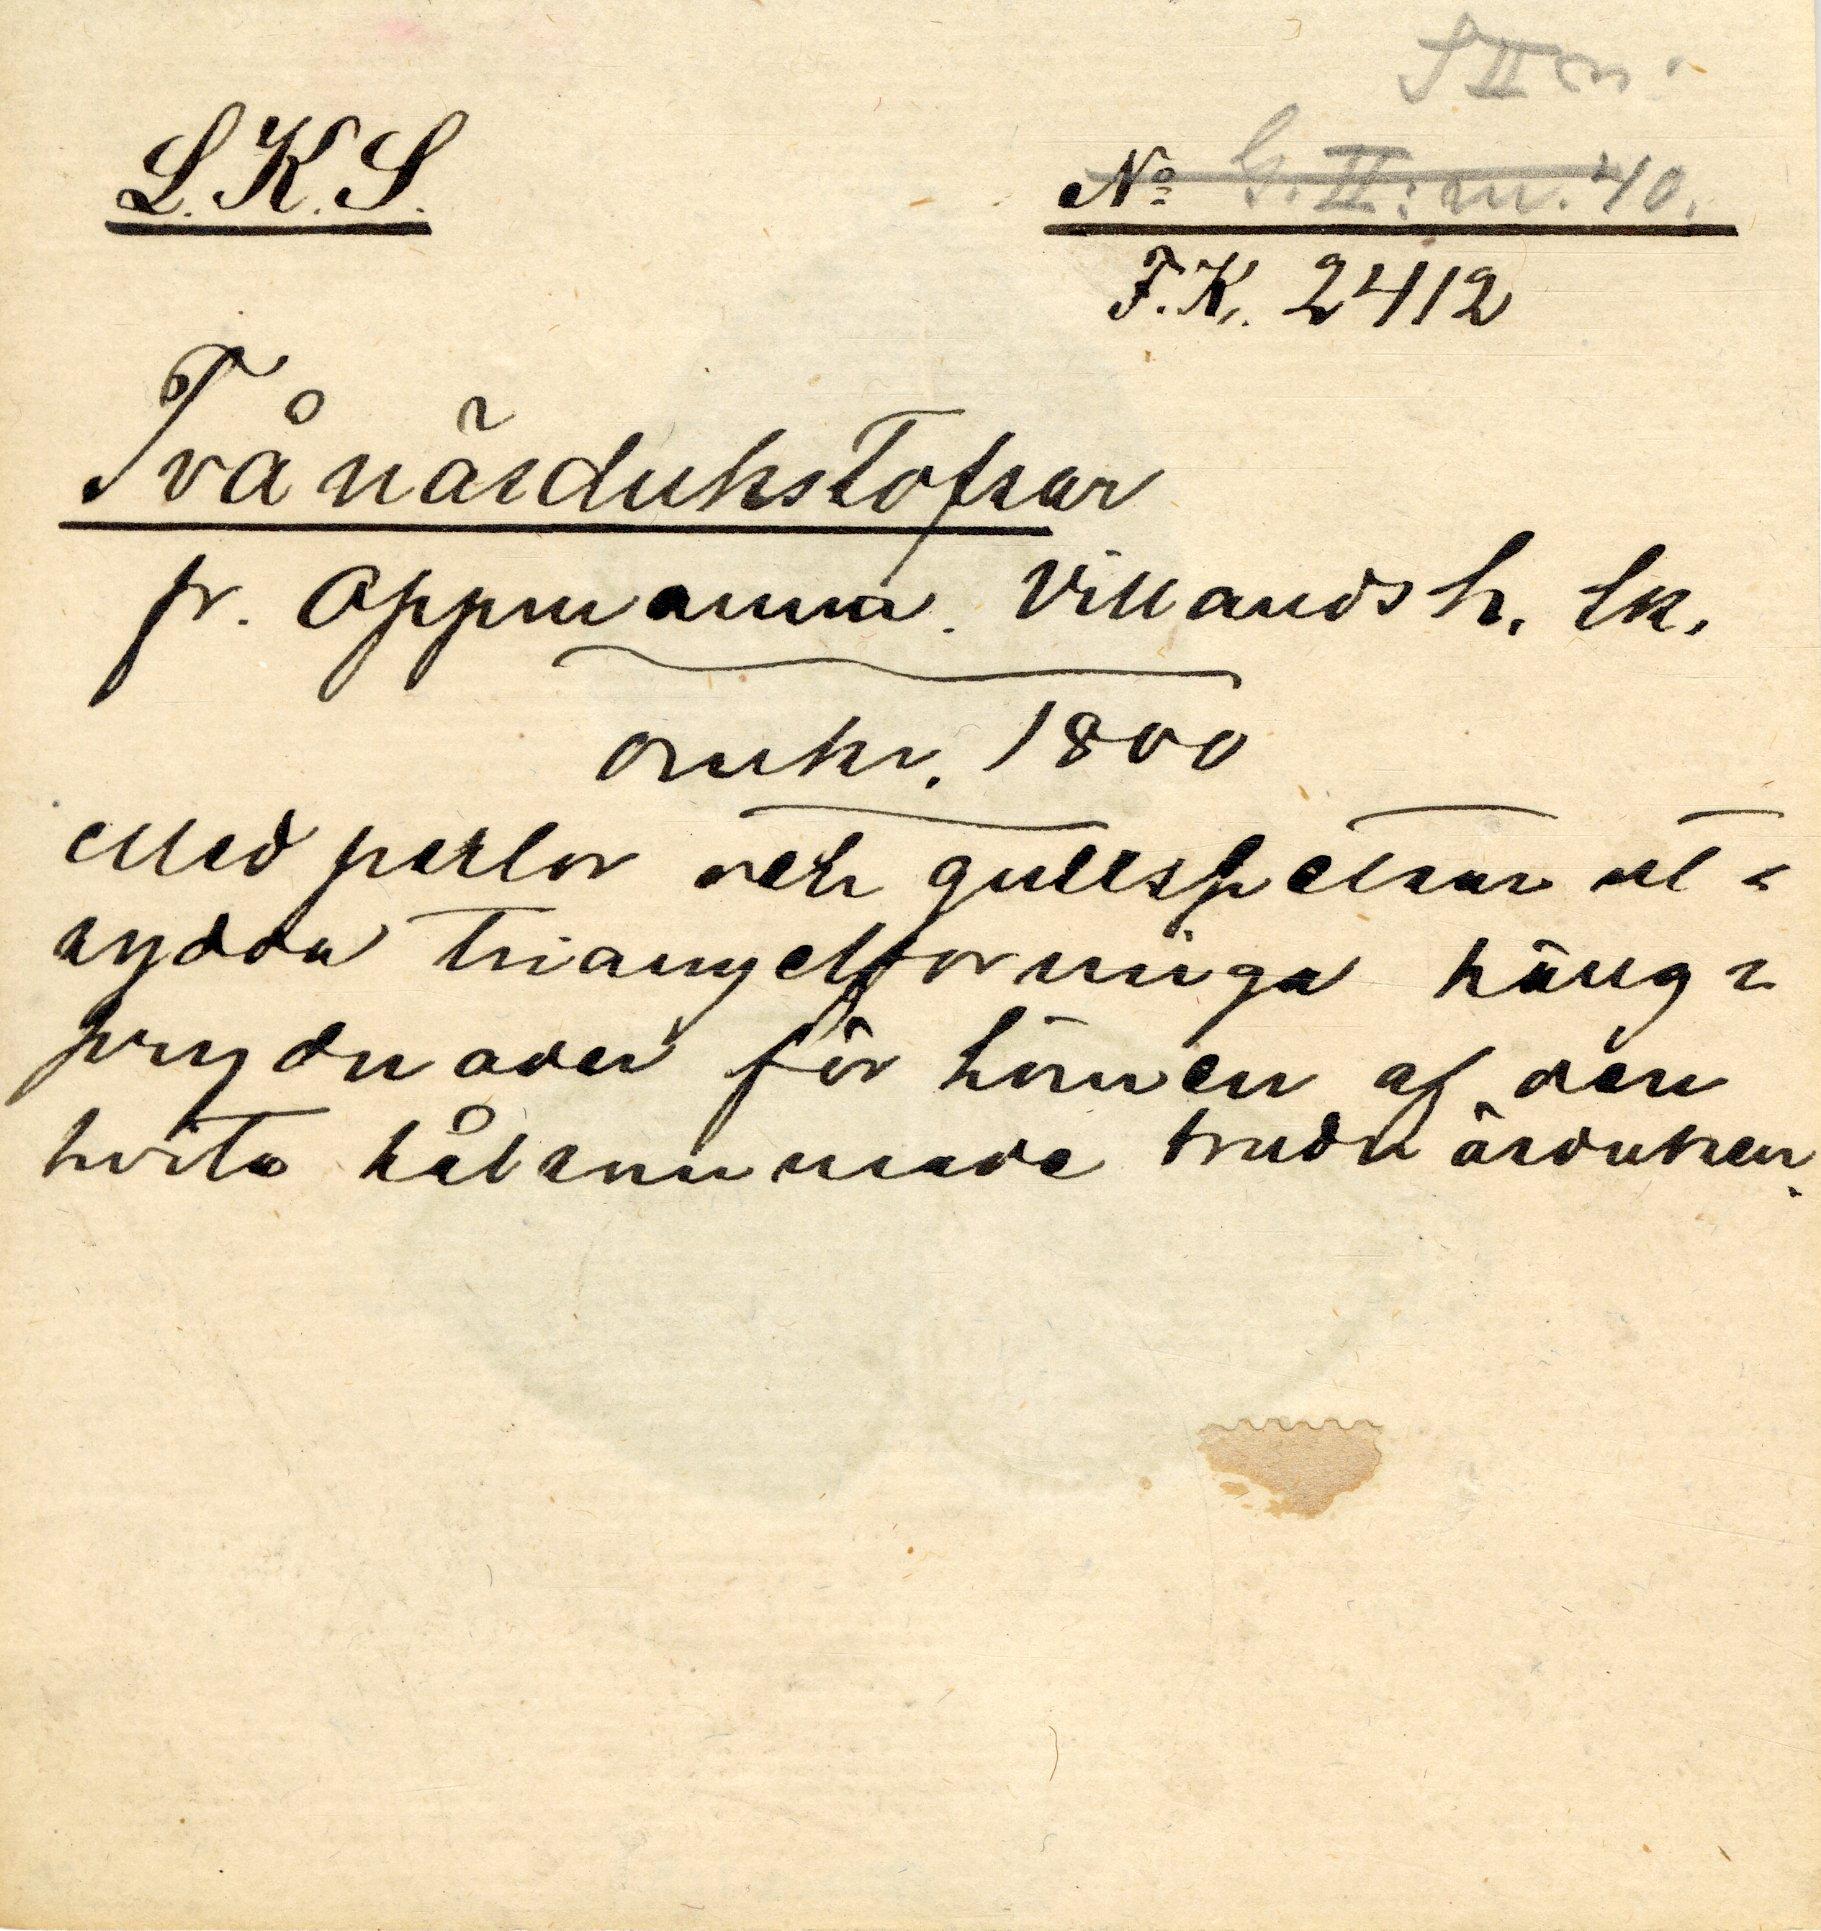 S II m:
L.K.S.
No G. II: m. 40.
F.K. 2412
Två näsdukstofsar
fr. Oppmanna. Villands h. Sk.
omkr. 1800
Med perlor och gullspetsar ut-
sydda triangelformiga häng-
prydnader för hörnen af den
hvita hålsömmade brudnäsduken.